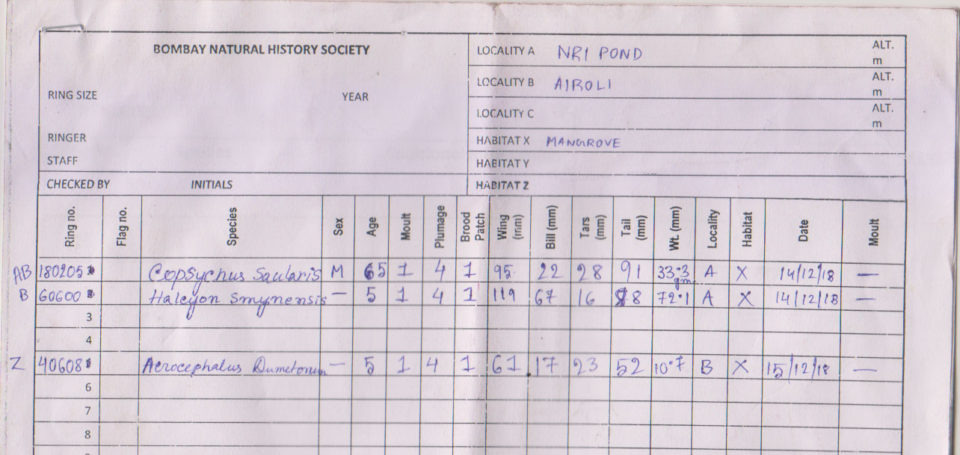 BOMBAY NATURAL HISTORY SOCIETY
RING SIZE YEAR
RINGER
STAFF
CHECKED BY INITIALS
LOCALITY A NRI POND ALT. m
LOCALITY B AIROLI ALT. m
LOCALITY C ALT. m
HABITAT X MANGROVE
HABITAT Y
HABITAT Z
Ring no. Flag no. Species Sex Age Moult Plumage Brood Patch Wing (mm) Bill (mm) Tars (mm) Tail (mm) Wt. (mm) Locality Habitat Date Moult
AB 180205 Copsychus Saularis M 65 1 4 1 95 22 28 91 33.3 gm A X 14/12/18 —
B 60600 Halcyon Smynensis — 5 1 4 1 119 67 16 78 72.1 A X 14/12/18 —
3
4
Z 40608 Acrocephalus Dumetorum — 5 1 4 1 61 17 23 52 10.7 B X 15/12/18 —
6
7
8